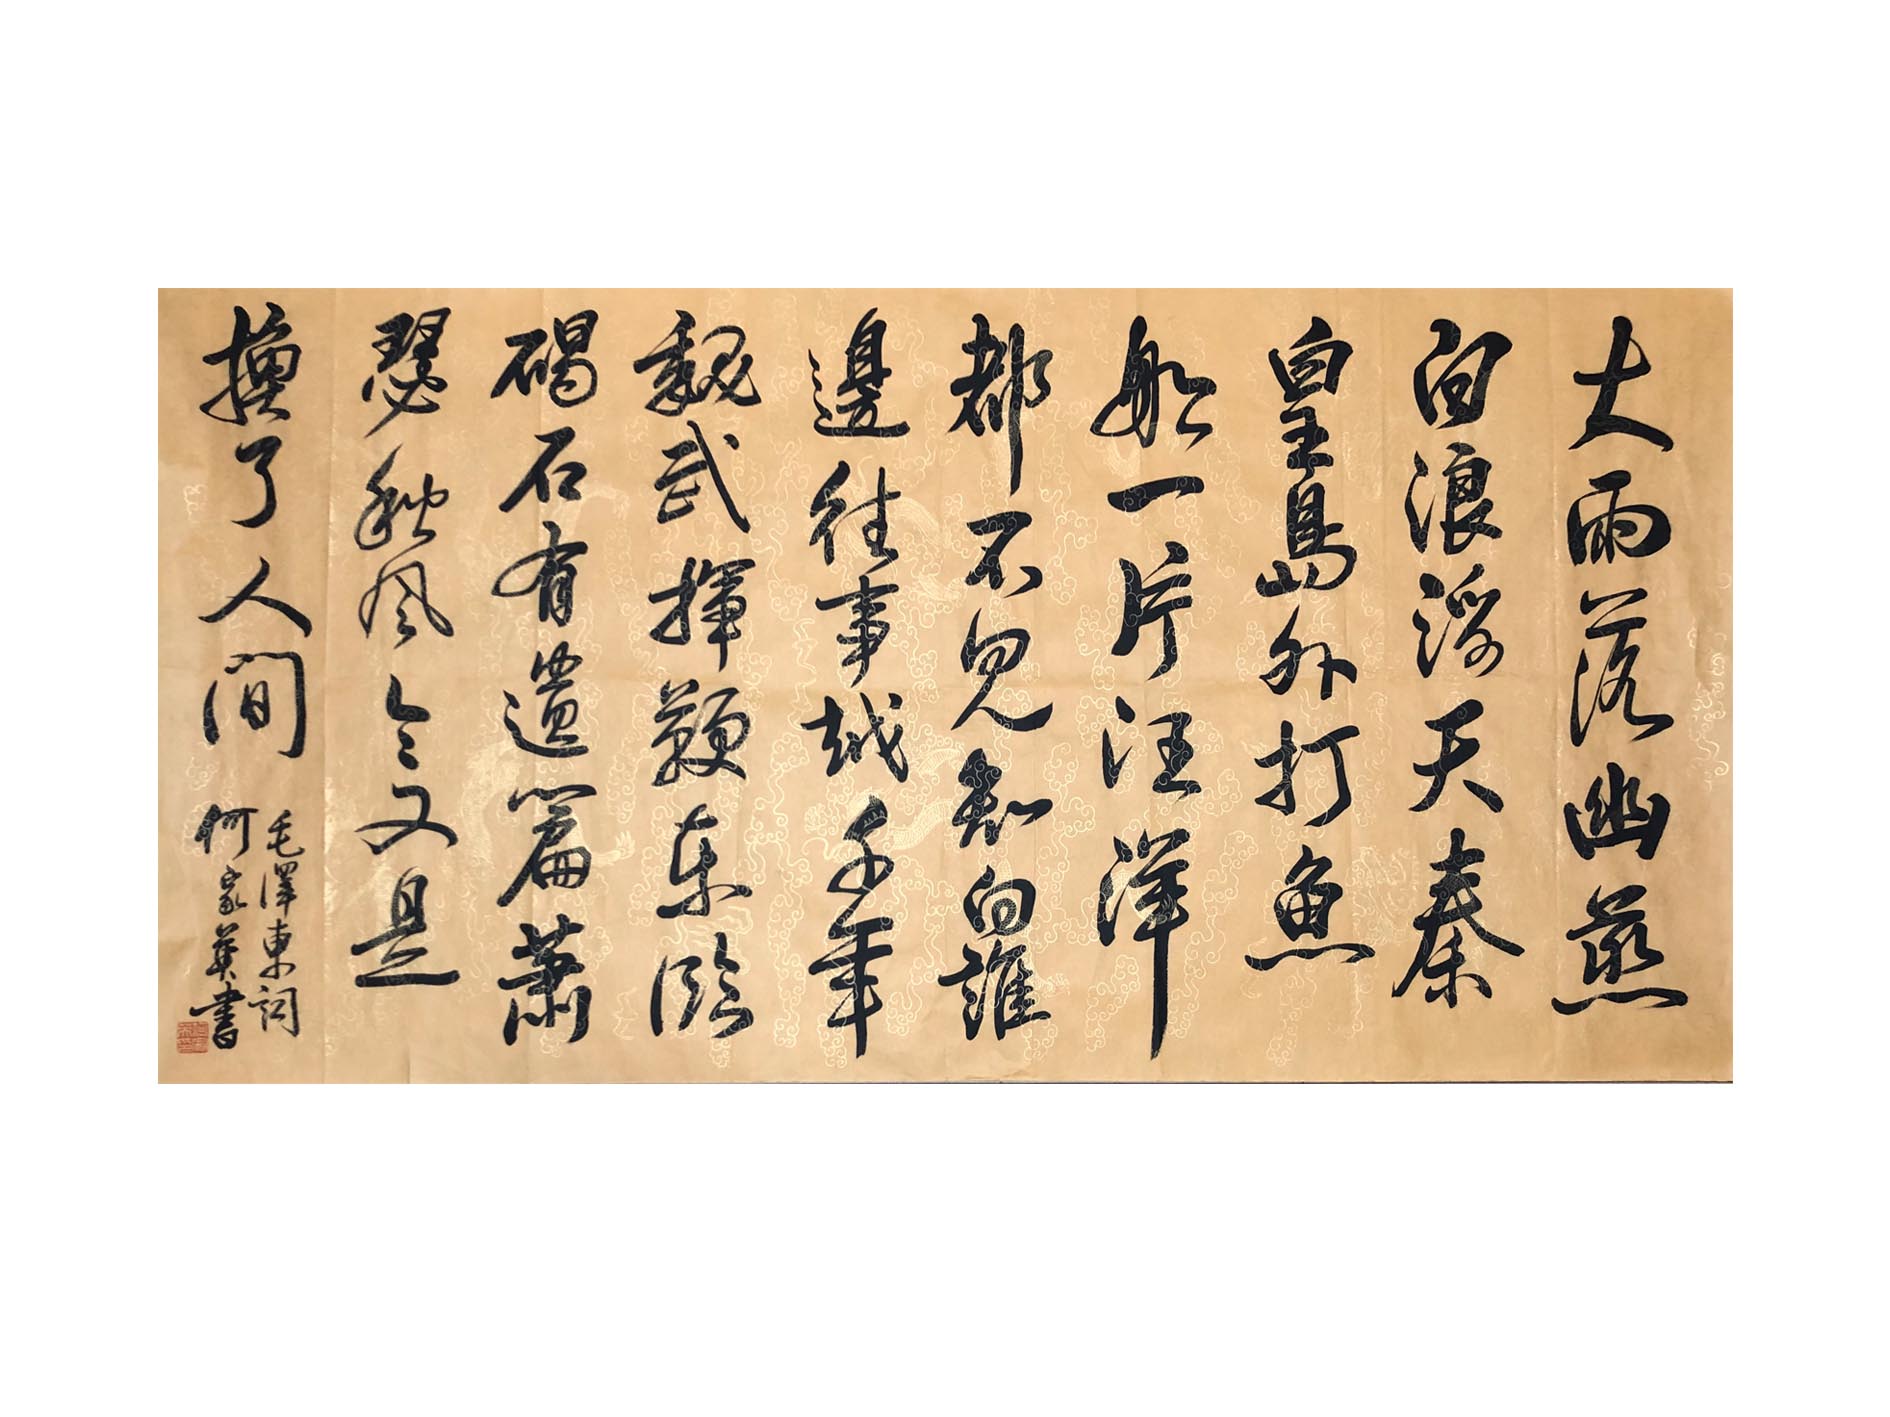 大雨落幽燕
白浪滔天秦
皇島外打魚
船一片汪洋
都不見知向誰
邊往事越千年
魏武揮鞭東臨
碣石有遺篇蕭
瑟秋風今又是
換了人間
毛澤東詞
何家英書